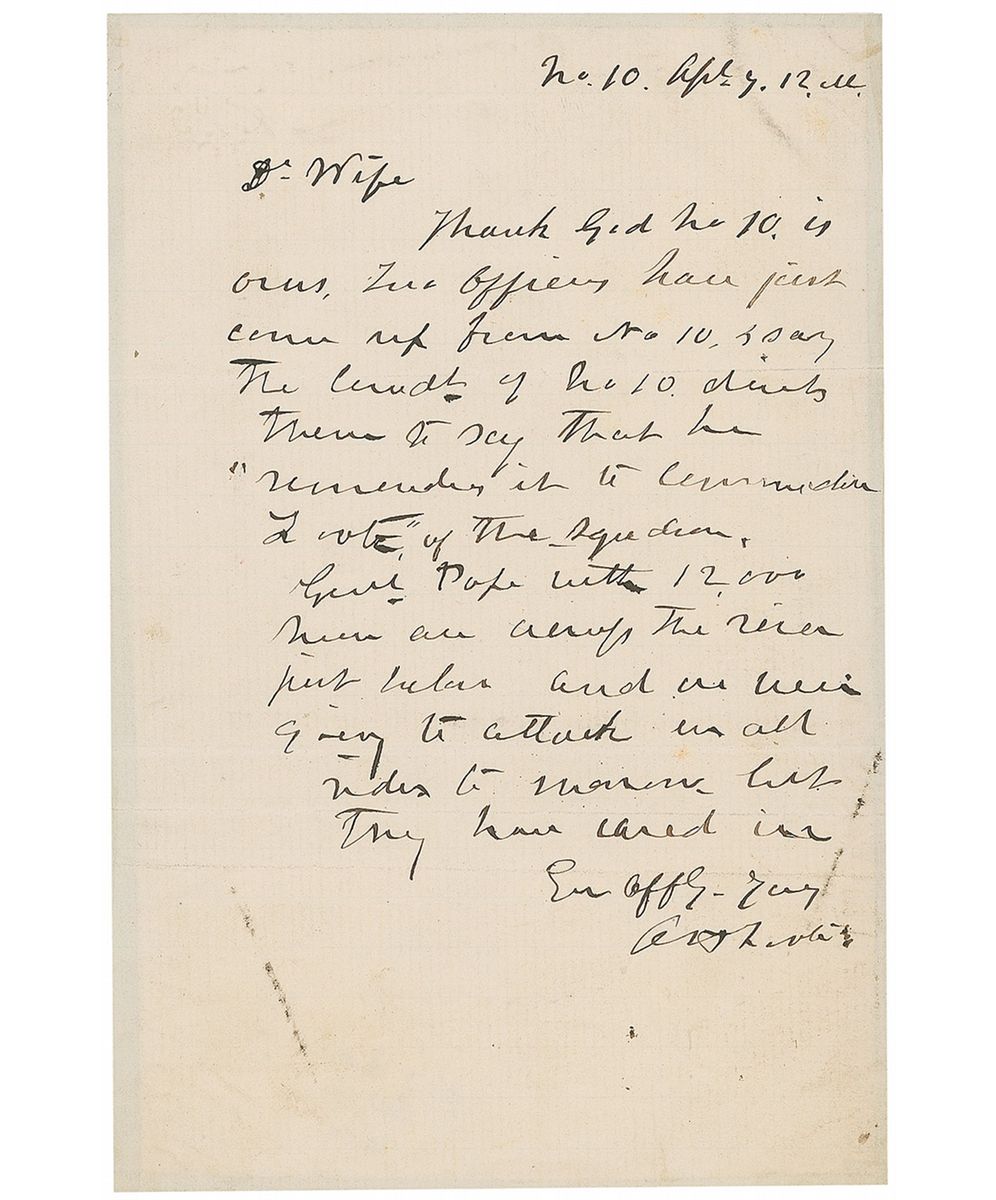 No. 10. Apl. 7. 12. M.
Dr. Wife
Thank God No 10. is
ours, Two Officers have just
come up from No 10, & say
The Comdt of No 10. directs
them to say that he
"surrenders it to Commodore
Foote," of the Squadron.
Genl. Pope with 12,000
men are across the river
just below and we were
going to attack on all
sides to morrow but
They have caved in
Ever Affly. Yours
A H Foote